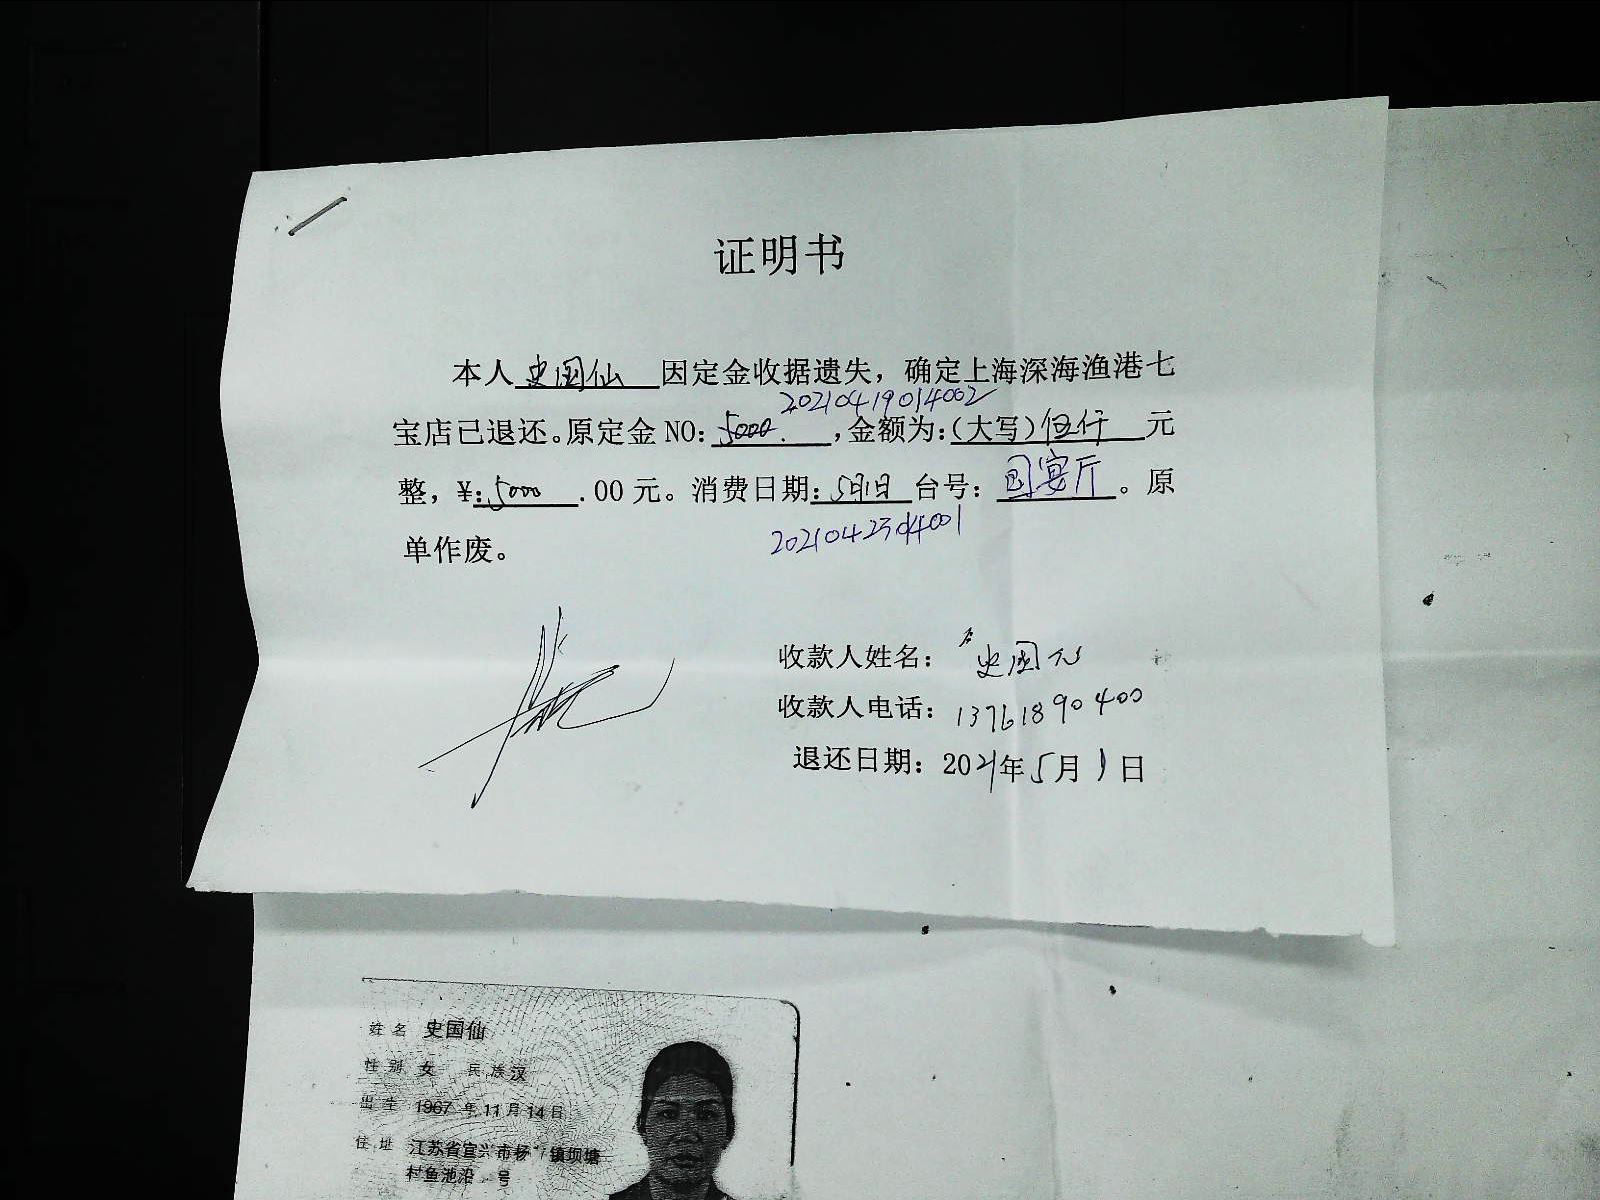 证明书
本人史国仙 因定金收据遗失，确定上海深海渔港七
20210419014002
宝店已退还。原定金 NO: 5000. ,金额为:(大写)伍仟 元
整，¥:5000 .00 元。消费日期:5月1日 台号: 国宴厅 。原
20210423014001
单作废。
收款人姓名： 史国仙
收款人电话：13761890400
退还日期：2021年5月1日
姓名 史国仙
性别 女 民族 汉
出生 1967 年 11 月 14 日
住址 江苏省宜兴市杨 镇坝塘
村鱼池沿 号